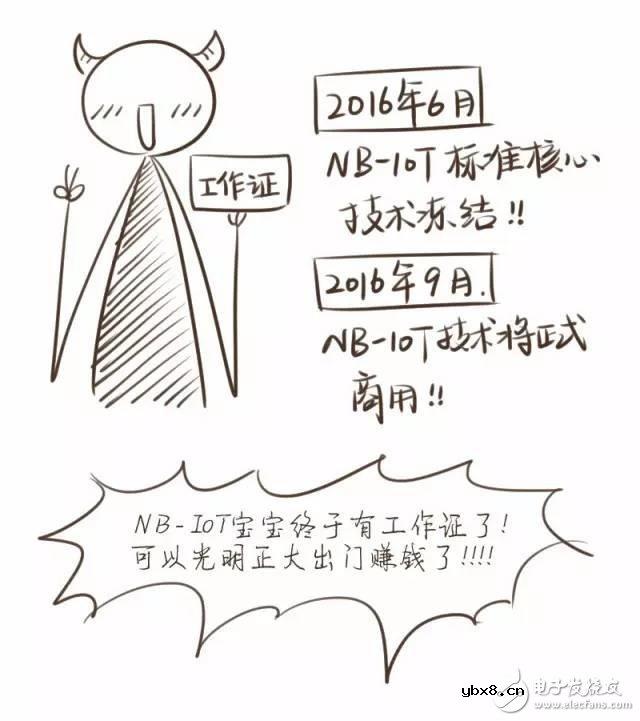 工作证
2016年6月
NB-IoT标准核心
技术冻结!!
2016年9月.
NB-IoT技术将正式
商用!!
NB-IOT宝宝终于有工作证了!
可以光明正大出门赚钱了!!!!
ybx8.cn
电子发烧友
www.elecfans.com